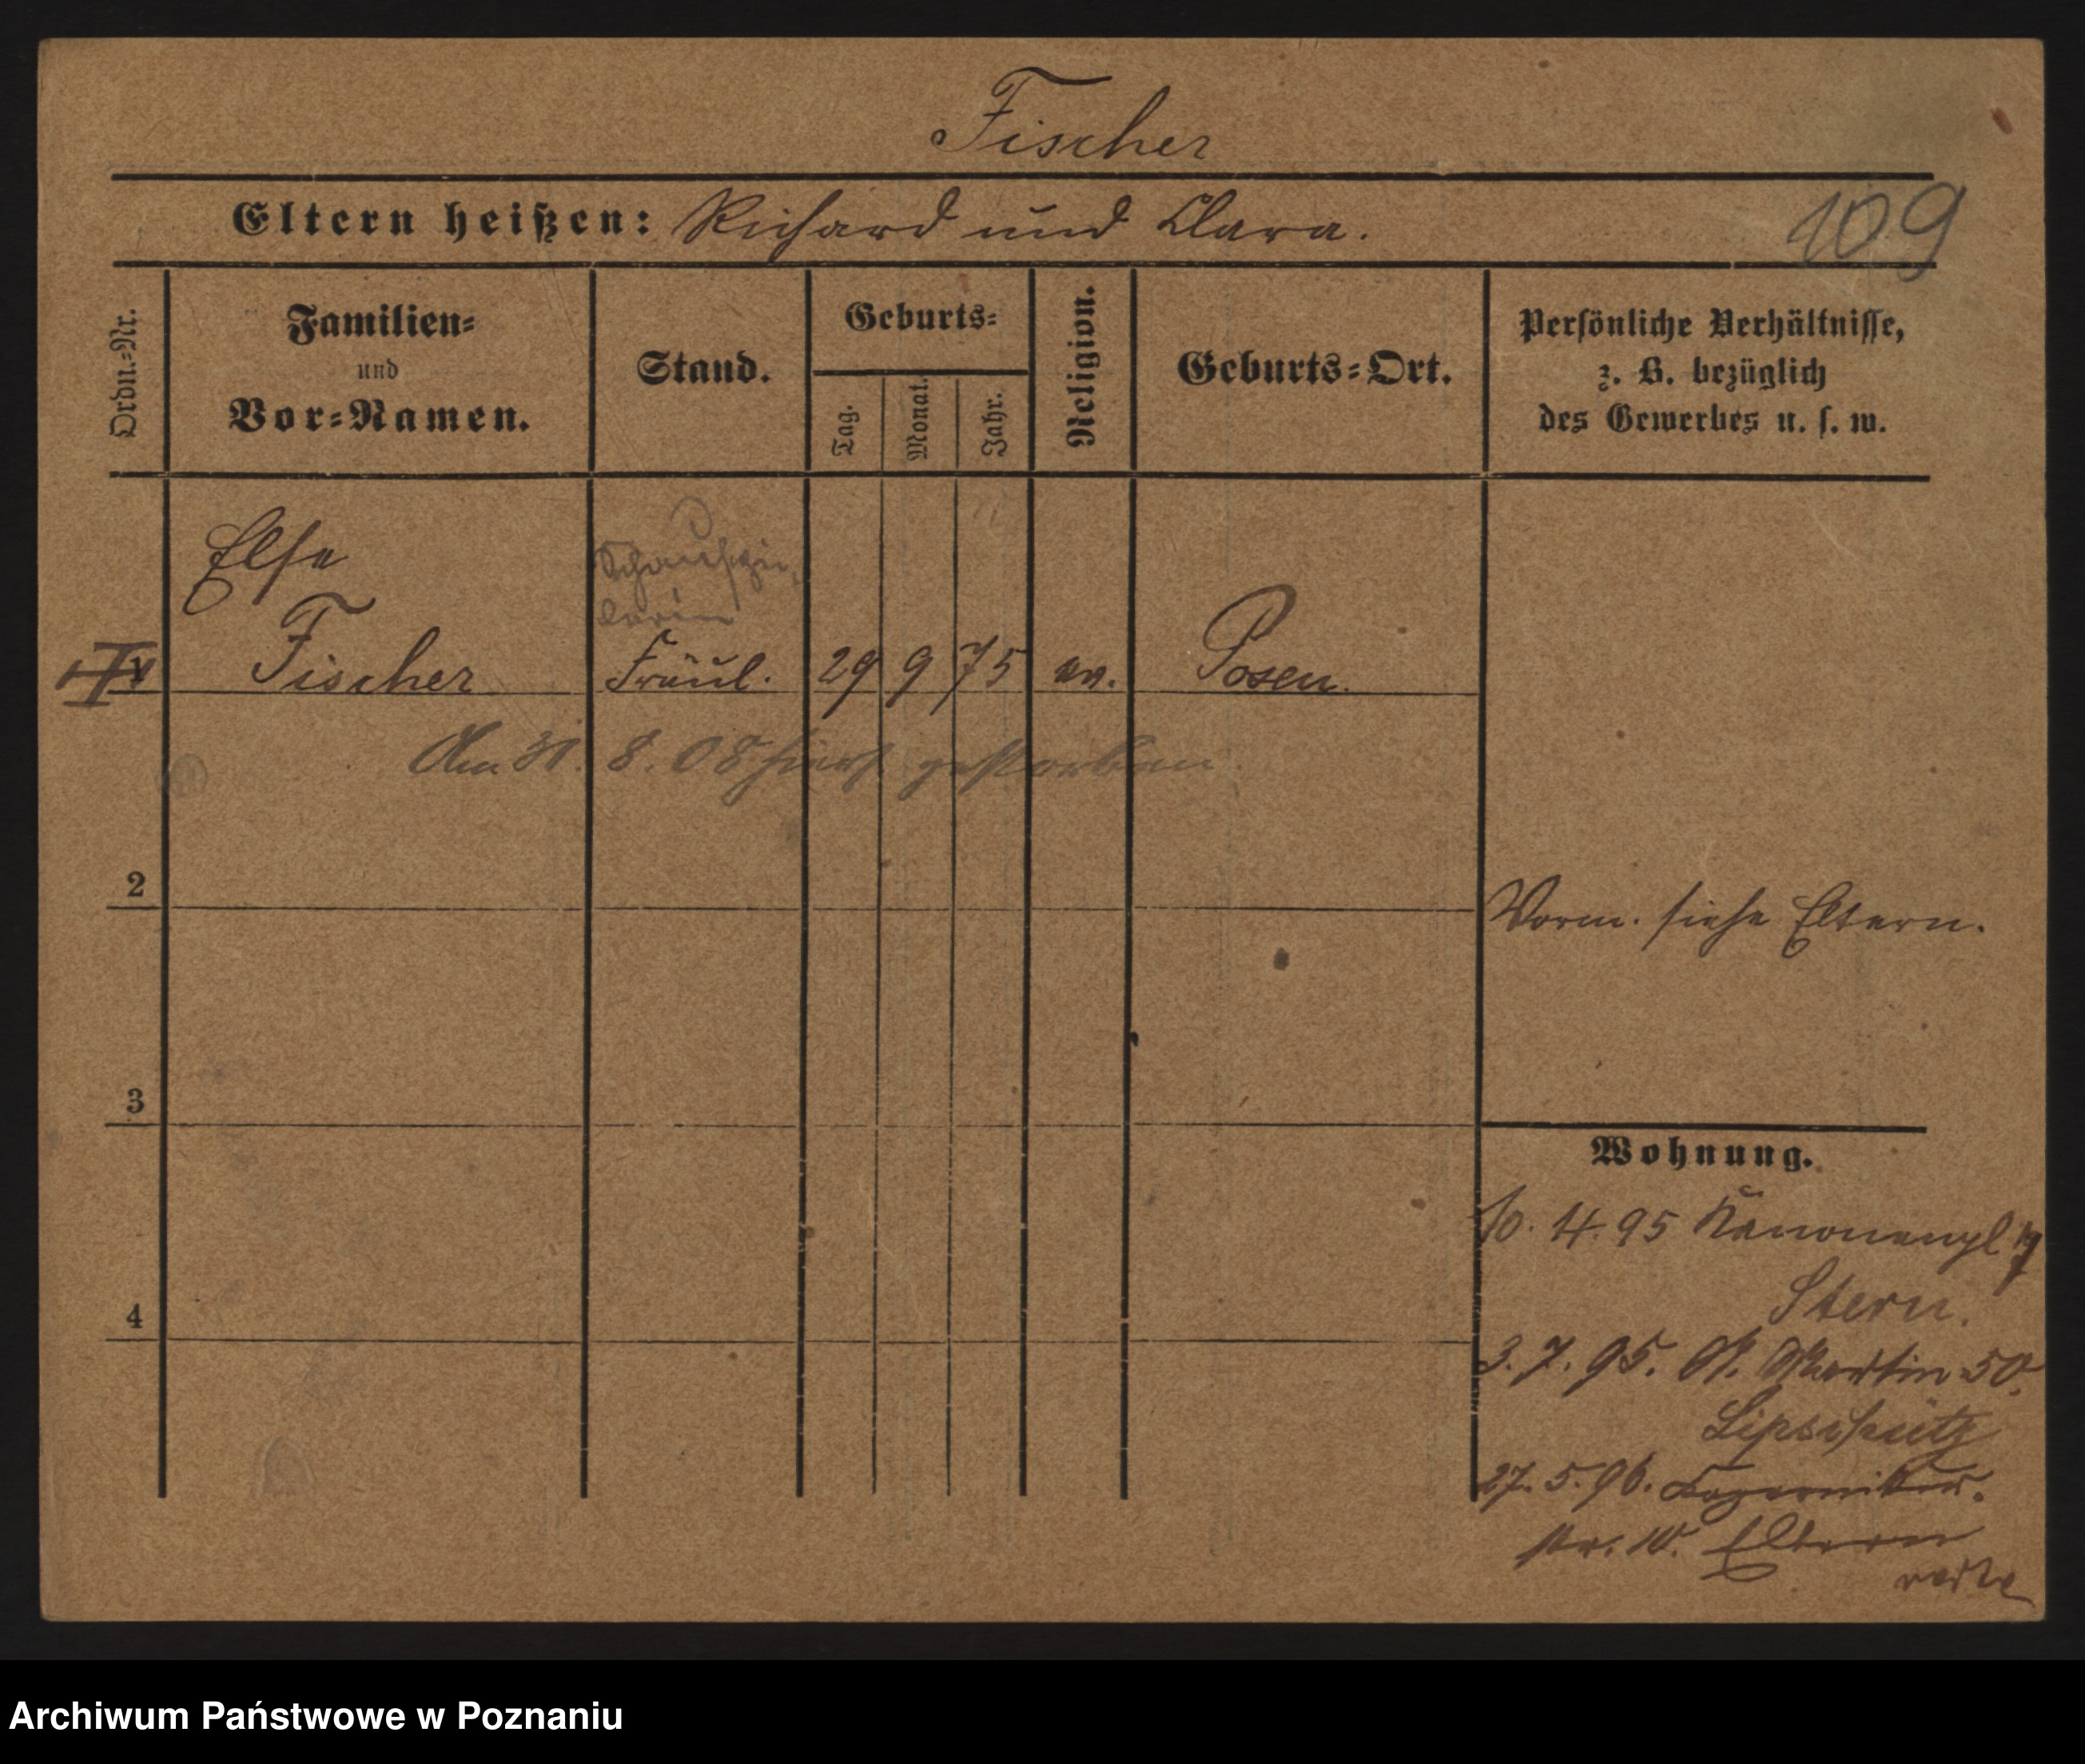 Fischer
Eltern heißen: Richard und Clara.
109
Ordn.=Nr.
Familien=
und
Vor=Namen.
Stand.
Geburts=
Tag.
Monat.
Jahr.
Religion.
Geburts=Ort.
Persönliche Verhältnisse,
z. B. bezüglich
des Gewerbes u. s. w.
Else
Schauspie-
lerin
Fischer Fräul. 29 9 75 ev. Posen.
Am 31. 8. 08 hier gestorben.
2
Vorm. siehe Eltern.
3
Wohnung.
10. 4. 95 Kanonenpl
Stern.
4
3. 7. 95. St. Martin 50.
Lipschütz
27. 5. 96.
str. 10. Eltern